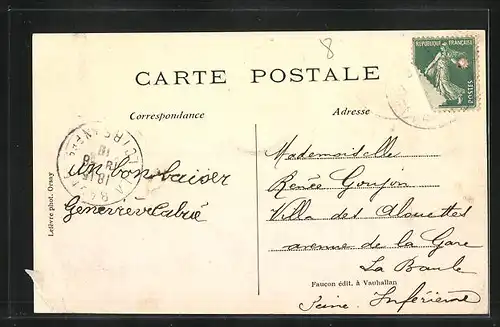 8
RÉPUBLIQUE FRANÇAISE
POSTES
CARTE POSTALE
Correspondance
Adresse
un bon baiser
Genevieve Labié
Mademoiselle
Renée Goujon
Villa des Alouettes
avenue de la Gare
La Baule
Inférieure
Faucon édit, à Vauhallan
Lelièvre phot. Orsay